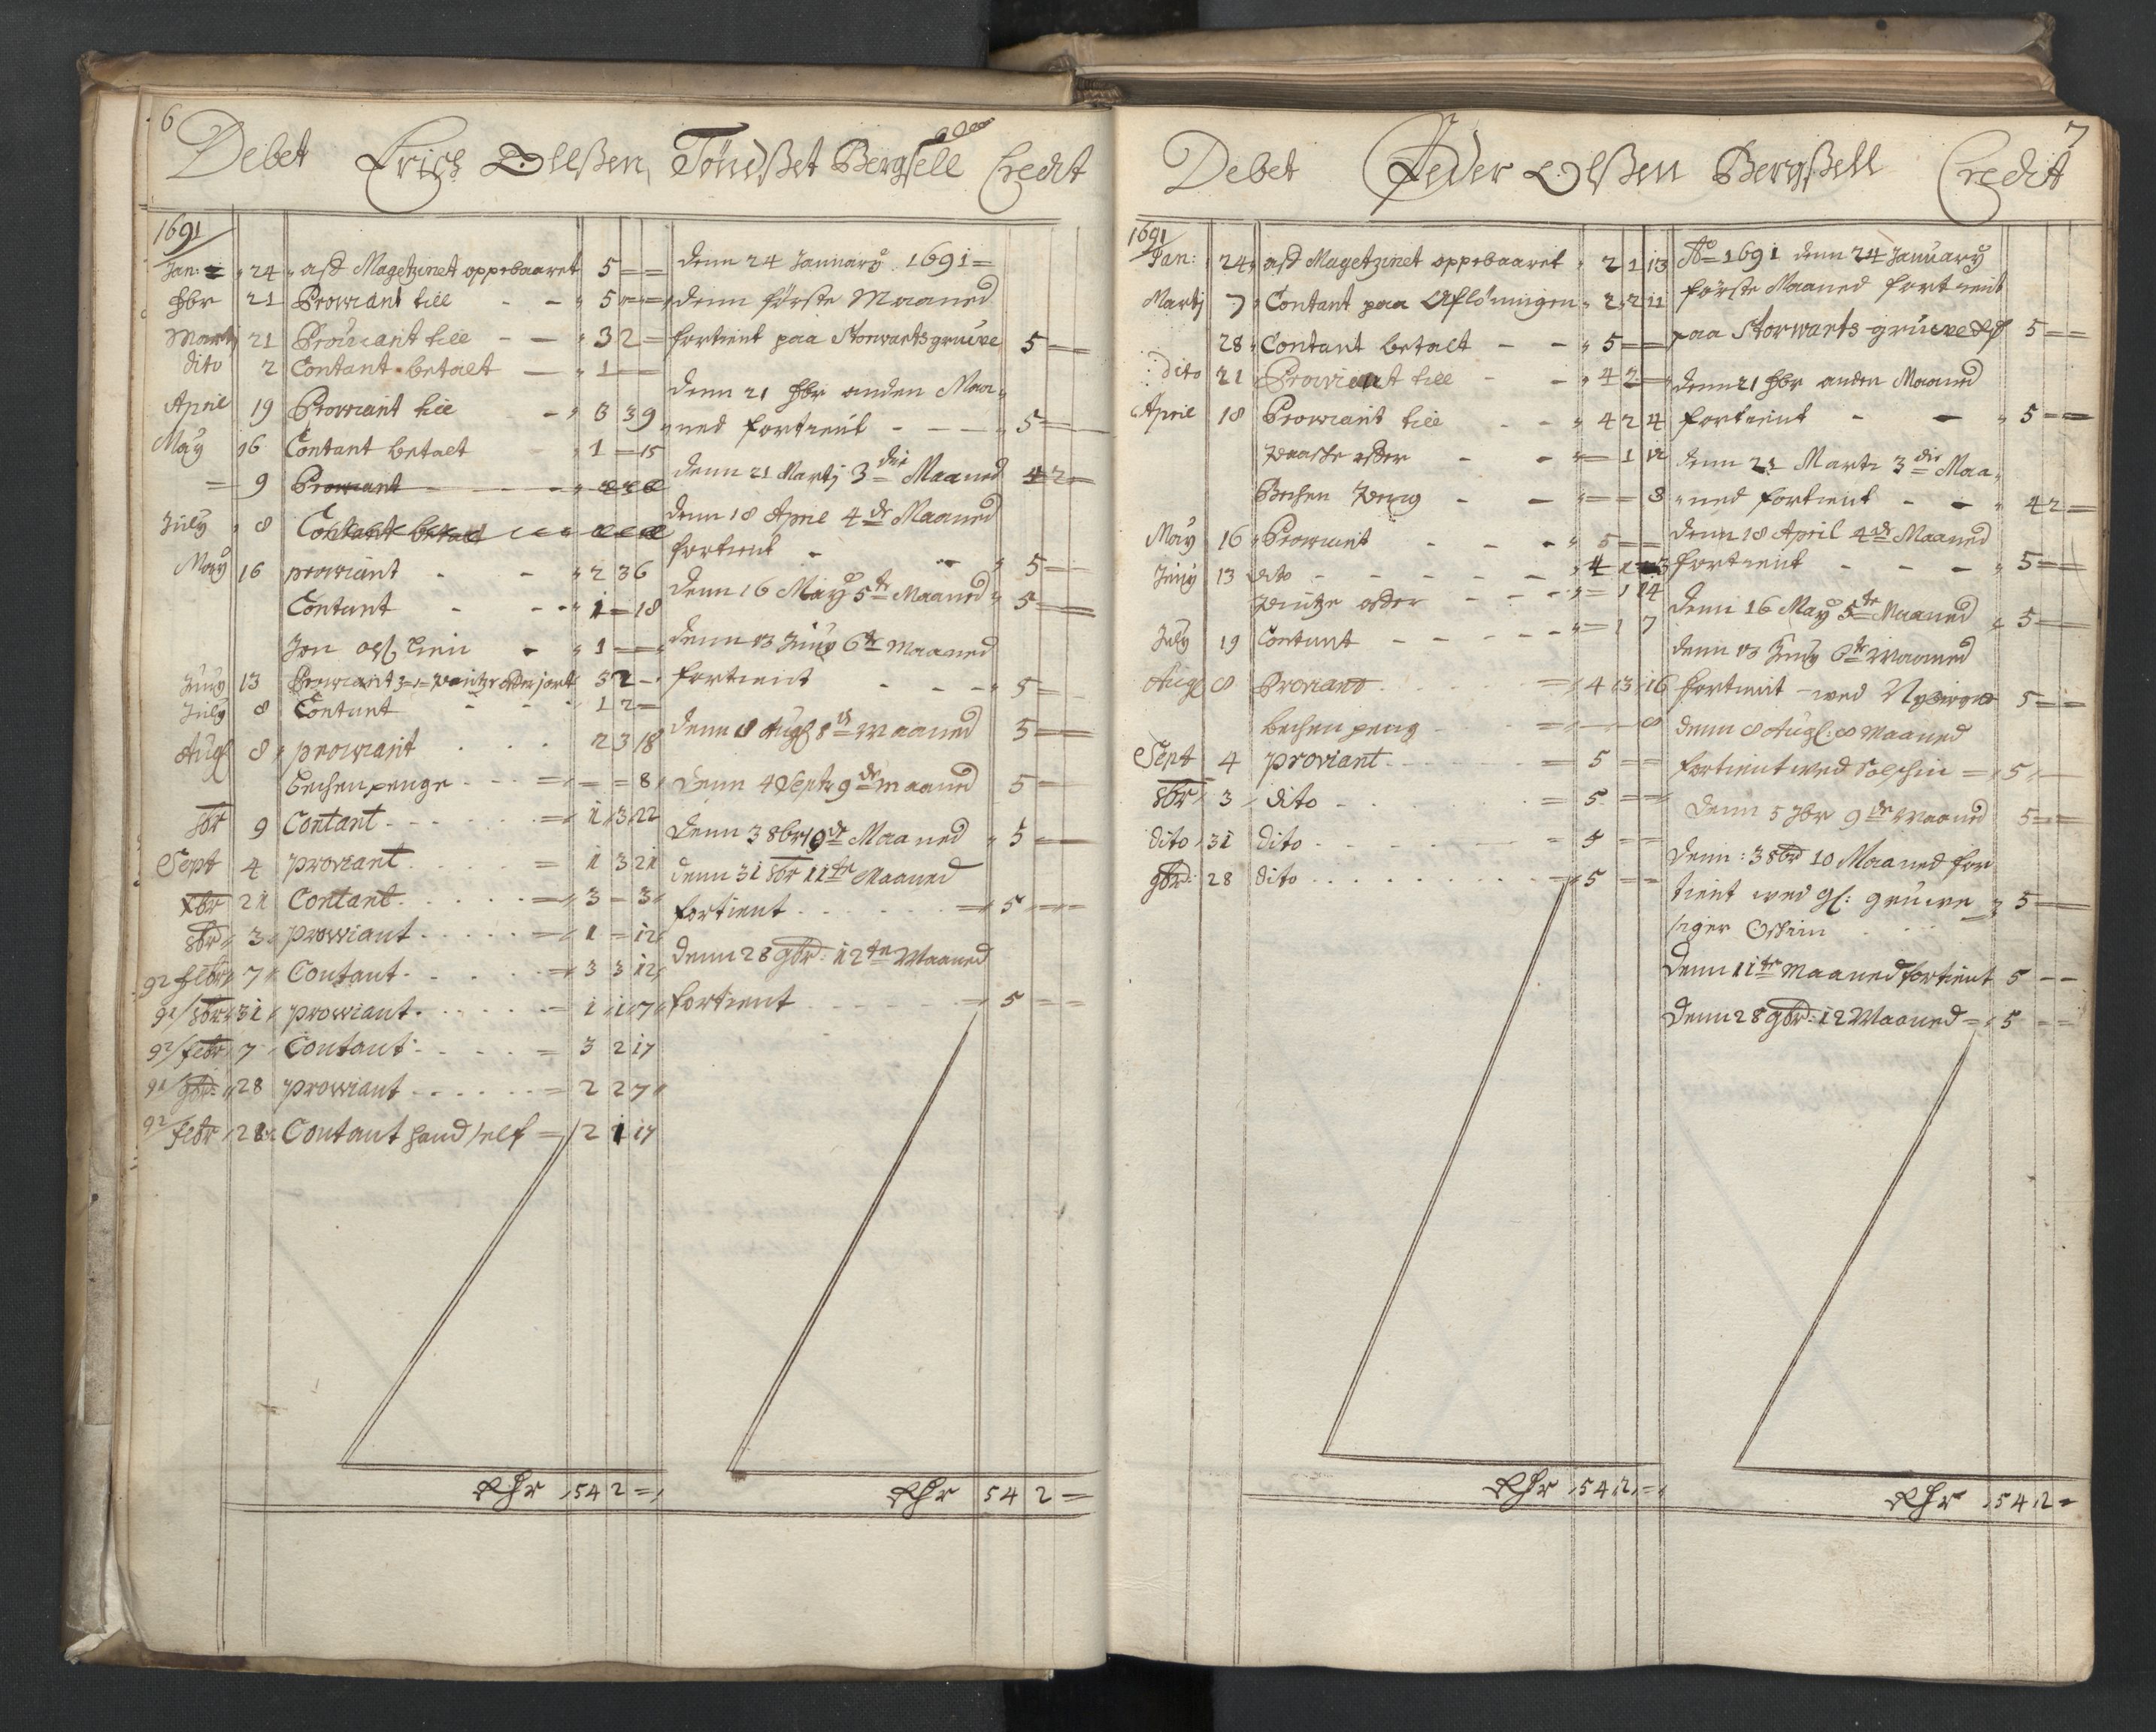 6
Debet Erich Olßen, Töndßet Bergsell Credit
1691
Jan: 24 asd Magetzinet oppebaaret 5 = =
fbr 21 Proviant till - - 5 = =
Martj 21 Proviant till - - 3 2 =
dito 2 Contant betalt - 1 = =
April 19 Proviant till - 3 3 9
May 16 Contant betalt 1 = 15
= 9 Proviant
July 8 Contant betalt
May 16 proviant - - 2 3 6
Contant - - 1 = 18
Jon Lien - 1 = =
Juny 13 Proviant 5 2 -
July 8 Contant - - 1 2 =
Aug 8 proviant . . . 2 3 18
bechenpenge - - - = = = 8
9 Contant - - - = 1 3 22
Sept 4 proviant . . . = 1 3 21
Xbr 21 Contant . . . = 3 = 3
8br 3 prowiant . . . = 1 = 12
92 febr 7 Contant . . . = 3 3 12
91/8br 31 prowiant . . . = 1 1 7
92/febr 7 Contant . . . = 3 2 17
91/9br: 28 prowiant . . . = 2 2 7
92/febr 28 Contant hand self = 2 1 17
Rhr 54 2 =
denn 24 January 1691 =
denn förste Maaned
fortient paa Storwartsgruwe 5 = =
denn 21 fbr anden Maa-
ned fortient - - - 5 = =
denn 21 Martj 3die Maaned 4 2 =
denn 18 April 4de Maaned
fortient - - 5 = =
denn 16 May 5te Maaned 5 = =
denn 13 Juny 6te Maaned
fortient - - - 5 = =
denn 8 Aug 8de Maaned 5 = =
denn 4 Septr 9de maaned 5 =
denn 3 8br 9de Maaned 5 =
denn 31 8br 11te Maaned
fortient . . . = 5 = =
denn 28 9br: 12te Maaned
fortient . . . = 5 = =
Rhr 54 2 =
7
Debet Peder Olßen Bergßell Credit
1691
Jan: 24 asd Magetzinet oppebaaret 2 1 13
Martj 7 Contant paa Aflönningen 2 2 11
28 Contant betalt - - 5 = =
dito 21 Proviant till - - 4 2 =
April 18 Proviant till - - 4 2 4
- - = 1 12
Bechen Peng - - = = 8
May 16 Proviant - - - 5 = =
Juny 13 dito - - - - - 4 1
- - - = 1 14
July 19 Contant - - - - = 1 7
Aug 8 Proviant . . . = 4 3 16
bechen peng . . = = = 8
Sept 4 proviant . . . = 5 = =
8br 3 dito . . . = 5 = =
dito 31 dito . . . = 5 = =
9br: 28 dito . . . = 5 = =
Rhr 54 2 =
Ao 1691 denn 24 January
förste Maaned fortient
paa Storwarts gruwe 5 = =
denn 21 fbr anden Maaned
fortient - - 5 = =
denn 21 Marti 3die Maa-
ned fortient - - 4 2 =
denn 18 April 4de Maaned
fortient - - - 5 = =
denn 16 May 5te Maaned 5 = =
denn 13 Juny 6te Maaned
fortient - wed 5 = =
denn 8 Aug: 8 Maaned
fortient wed Solschin = 5 =
denn 5 9de Maaned 5 = =
denn: 3 8br 10 Maaned for
tient wed gl: gruwe 5 =
denn 11te Maaned fortient 5 - -
denn 28 9br: 12 Maaned = 5 = =
Rhr 54 2 =